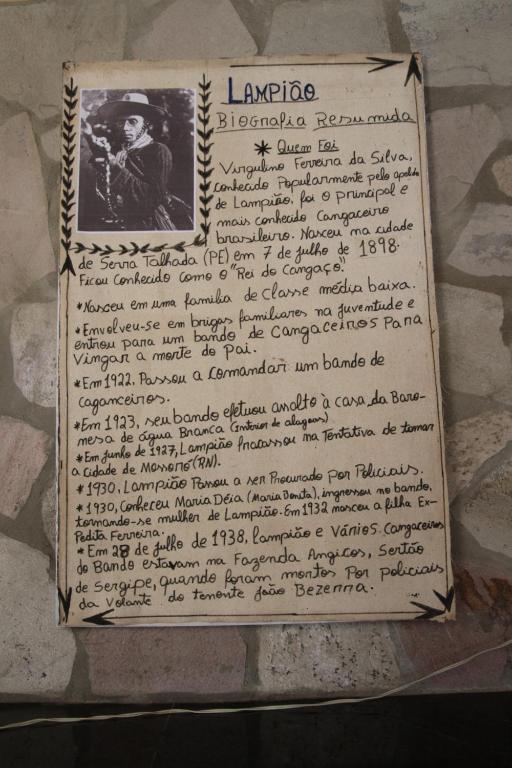 LAMPIÃO
Biografia Resumida
* Quem Foi
Virgulino Ferreira da Silva,
conhecido Popularmente pelo apelido
de Lampião, foi o principal e
mais conhecido Cangaceiro
brasileiro. Nasceu na cidade
de Serra Talhada (PE) em 7 de julho de 1898.
Ficou Conhecido como o "Rei do Cangaço".
*Nasceu em uma família de Classe média baixa.
*Envolveu-se em brigas familiares na juventude e
entrou para um bando de Cangaceiros Para
Vingar a morte do Pai.
*Em 1922, Passou a comandar um bando de
caganceiros.
*Em 1923, seu bando efetuou assalto à casa da Baro-
nesa de água Branca (interior de alagoas)
*Em junho de 1927, Lampião fracassou na Tentativa de tomar
a Cidade de Mossoró (RN).
*1930, Lampião Passou a ser Procurado por Policiais.
*1930, Conheceu Maria Déia (Maria Bonita), ingressou no bando,
tornando-se mulher de Lampião. Em 1932 nasceu a filha Ex-
Pedita Ferreira.
*Em 28 de julho de 1938, lampião e Vários Cangaceiros
do Bando estavam na Fazenda Angicos, Sertão
de Sergipe, quando foram mortos Por policiais
da Volante do tenente João Bezerra.